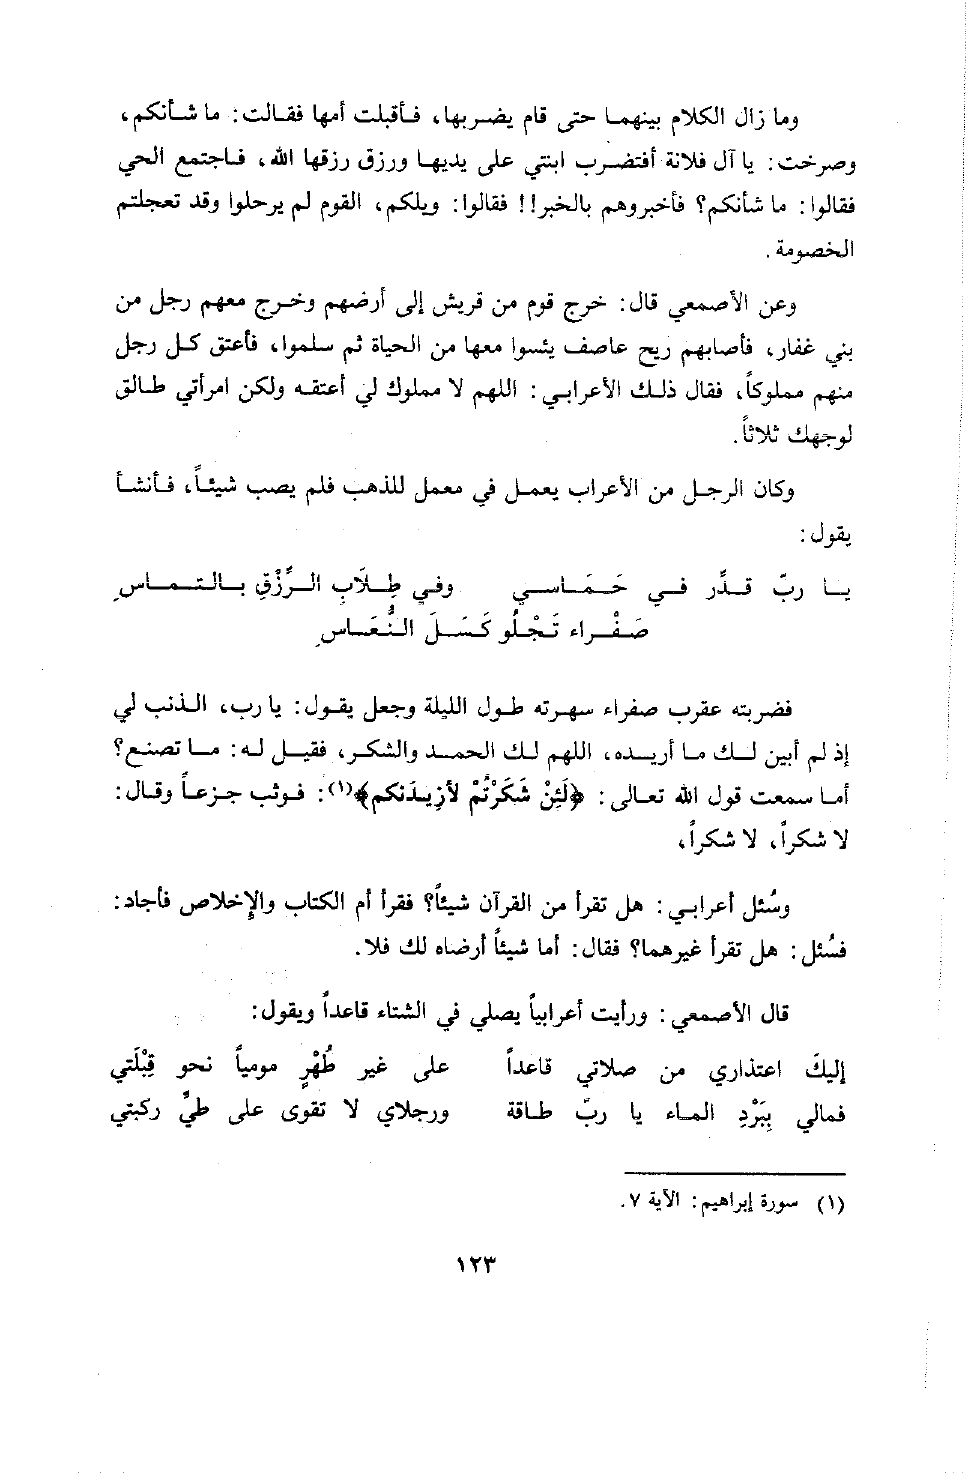 وما زال الكلام بينهما حتى قام يضربها، فأقبلت أمها فقالت: ما شأنكم،
وصرخت: يا آل فلانة أفتضرب ابنتي على يديها ورزق رزقها الله، فاجتمع الحي
فقالوا: ما شأنكم؟ فأخبروهم بالخبر!! فقالوا: ويلكم، القوم لم يرحلوا وقد تعجلتم
الخصومة.
وعن الأصمعي قال: خرج قوم من قريش إلى أرضهم وخرج معهم رجل من
بني غفار، فأصابهم ريح عاصف يئسوا معها من الحياة ثم سلموا، فأعتق كل رجل
منهم مملوكاً، فقال ذلك الأعرابي: اللهم لا مملوك لي أعتقه ولكن امرأتي طالق
لوجهك ثلاثاً.
وكان الرجل من الأعراب يعمل في معمل للذهب فلم يصب شيئاً، فأنشأ
يقول:
يا ربّ قدَّر في حَمَاسي وفي طِلَابِ الرِّزْقِ بالتماسِ
صَفْراء تَجْلُو كَسَلَ النُّعَاسِ
فضربته عقرب صفراء سهرته طول الليلة وجعل يقول: يا رب، الذنب لي
إذ لم أبين لك ما أريده، اللهم لك الحمد والشكر، فقيل له: ما تصنع؟
أما سمعت قول الله تعالى: ﴿لَئِنْ شَكَرْتُمْ لأزِيدَنكم﴾(١): فوثب جزعاً وقال:
لا شكراً، لا شكراً،
وسُئل أعرابي: هل تقرأ من القرآن شيئاً؟ فقرأ أم الكتاب والإخلاص فأجاد:
فسُئل: هل تقرأ غيرهما؟ فقال: أما شيئاً أرضاه لك فلا.
قال الأصمعي: ورأيت أعرابياً يصلي في الشتاء قاعداً ويقول:
إليكَ اعتذاري من صلاتي قاعداً على غير طُهْرٍ مومياً نحو قِبْلَتي
فمالي بِبَرْدِ الماء يا ربّ طاقة ورجلاي لا تقوى على طيِّ ركبتي
(١) سورة إبراهيم: الآية ٧.
١٢٣